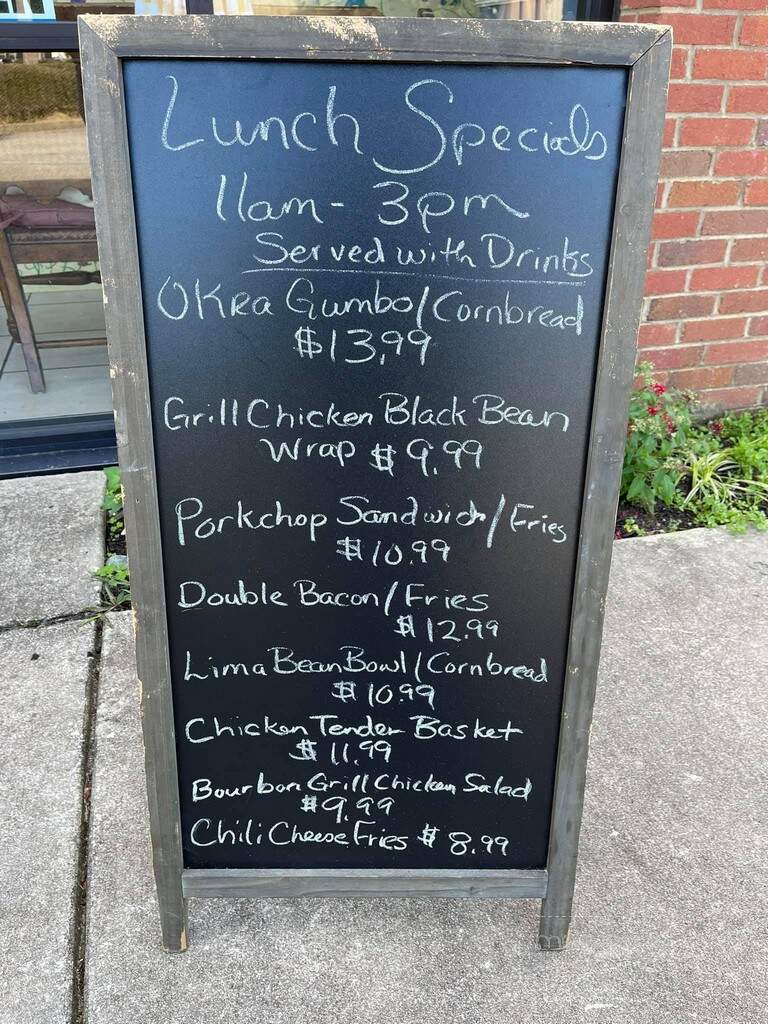 Lunch Specials
11am - 3pm
Served with Drinks
Okra Gumbo/Cornbread
$13.99
Grill Chicken Black Bean
Wrap $9.99
Porkchop Sandwich/Fries
$10.99
Double Bacon/Fries
$12.99
Lima Bean Bowl/Cornbread
$10.99
Chicken Tender Basket
$11.99
Bourbon Grill Chicken Salad
$9.99
Chili Cheese Fries $8.99